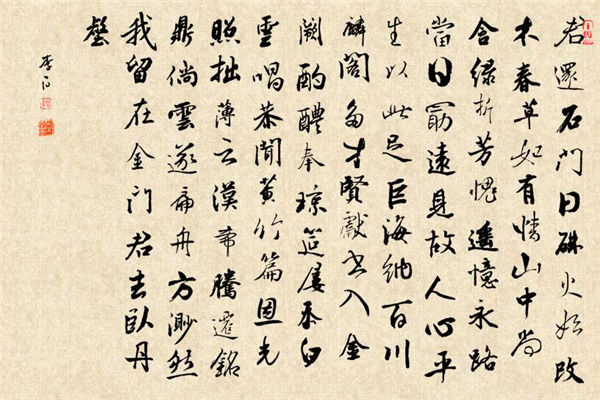 君還石門日硃火始改
木春草如有情山中尚
含綠折芳愧遙憶永路
當日勖遠見故人心平
生以此足巨海納百川
麟閣多才賢獻書入金
闕酌醴奉瓊筵屢忝白
雲唱恭聞黃竹篇恩光
照拙薄云漢希騰遷銘
鼎倘雲遂扁舟方渺然
我留在金門君去臥丹
壑
李白